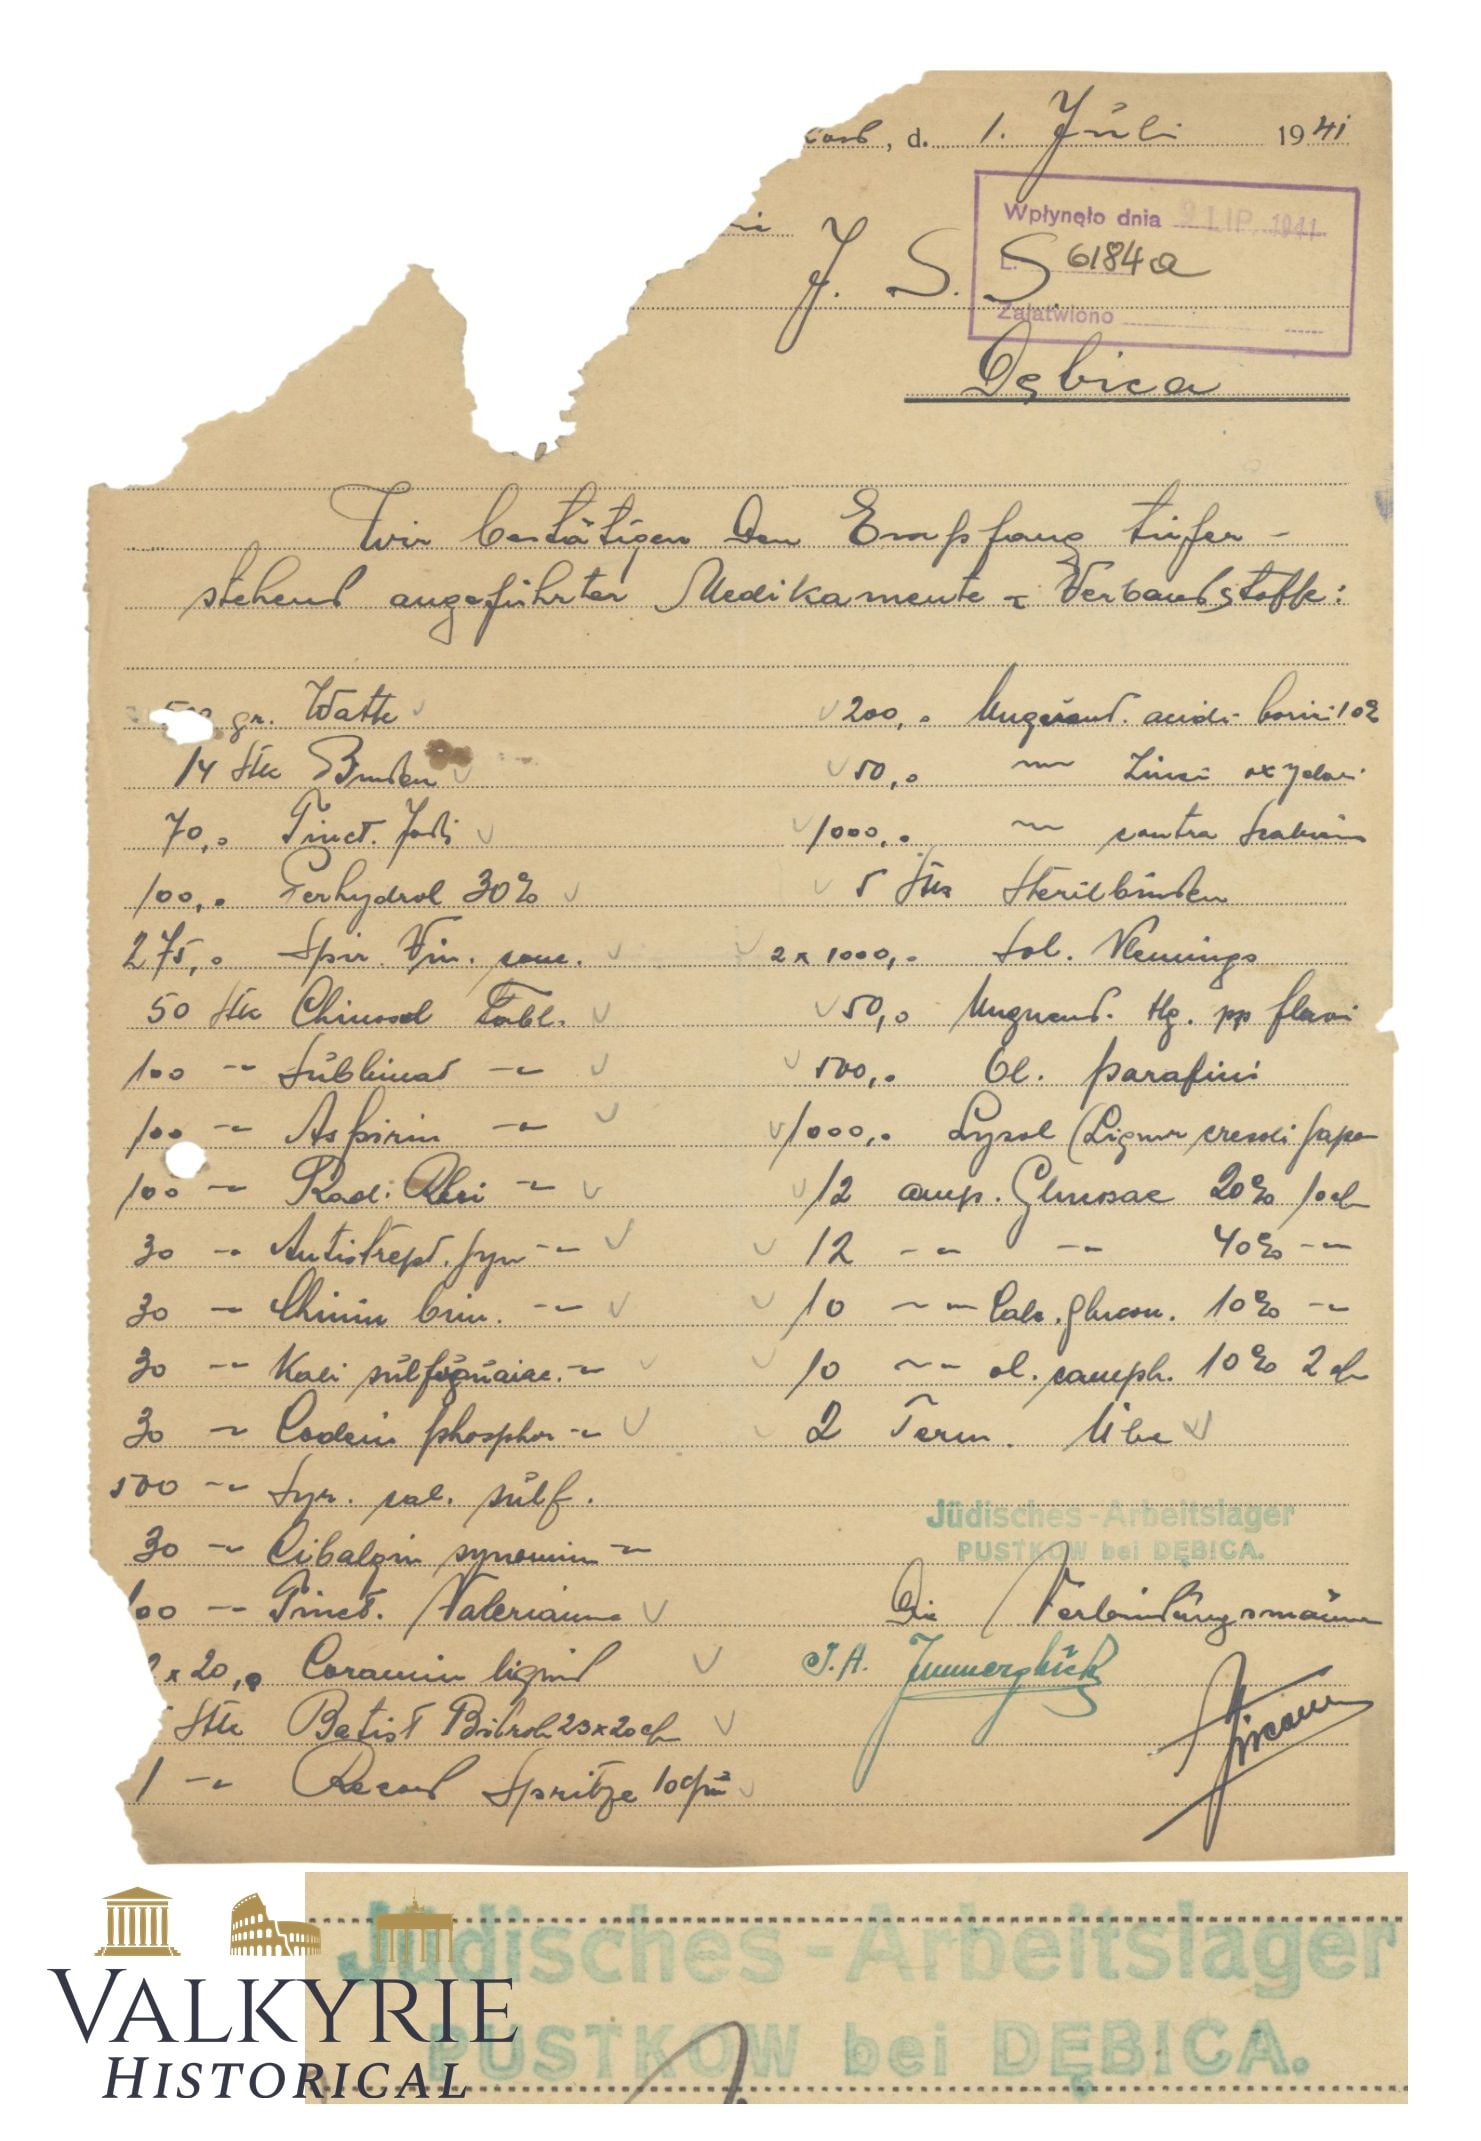 , d. 1. Jŭli 1941
Wpłynęło dnia 2 LIP. 1941
L. 6184a
Załatwiono
J. S. S.
Dębica
Wir bestätigen den Empfang tiefer-
stehend angeführter Medikamente u Verbandstoffe:
gr. Watte
14 Stk Binden
70,0 Tinct. Jodi
100,0 Perhydrol 30%
275,0 Spir. Vin. conc.
50 Stk Chinosol Tabl.
100 -"- Sŭblimat -"-
100 -"- Aspirin -"-
100 -"- Rad. Rhei -"-
30 -"- Antistrept. -"-
30 -"- Chinin -"-
30 -"- Kali sŭlfogŭaiac. -"-
30 -"- Codein phosphor -"-
500 -"- Syr. cal. sŭlf.
30 -"- Cibalgin synonim -"-
100 -"- Tinct. Valerianae
2 x 20,0 Coramin liquid
Stk Batist Bilroth 23x20
1 -"- Record Spritze 10
200,0 Unguent. acidi borici 10%
50,0 -"- Zinci oxydati
1000,0 -"- contra Scabiem
5 Stk Sterilbinden
2 x 1000,0 Sol. Vlemings
50,0 Unguent. Hg. pp flavi
500,0 Ol. parafini
1000,0 Lysol (Liquor cresoli sapo
12 amp. Glucosae 20% 10
12 -"- -"- 40% -"-
10 -"- Calc. Glucon. 10% -"-
10 -"- ol. camph. 10% 2
2 Term. Ube
Jüdisches-Arbeitslager
PUSTKOW bei DĘBICA.
Die Verbindŭngsmänner
J. A. Immerglŭck
Jüdisches-Arbeitslager
PUSTKOW bei DĘBICA.
VALKYRIE
HISTORICAL